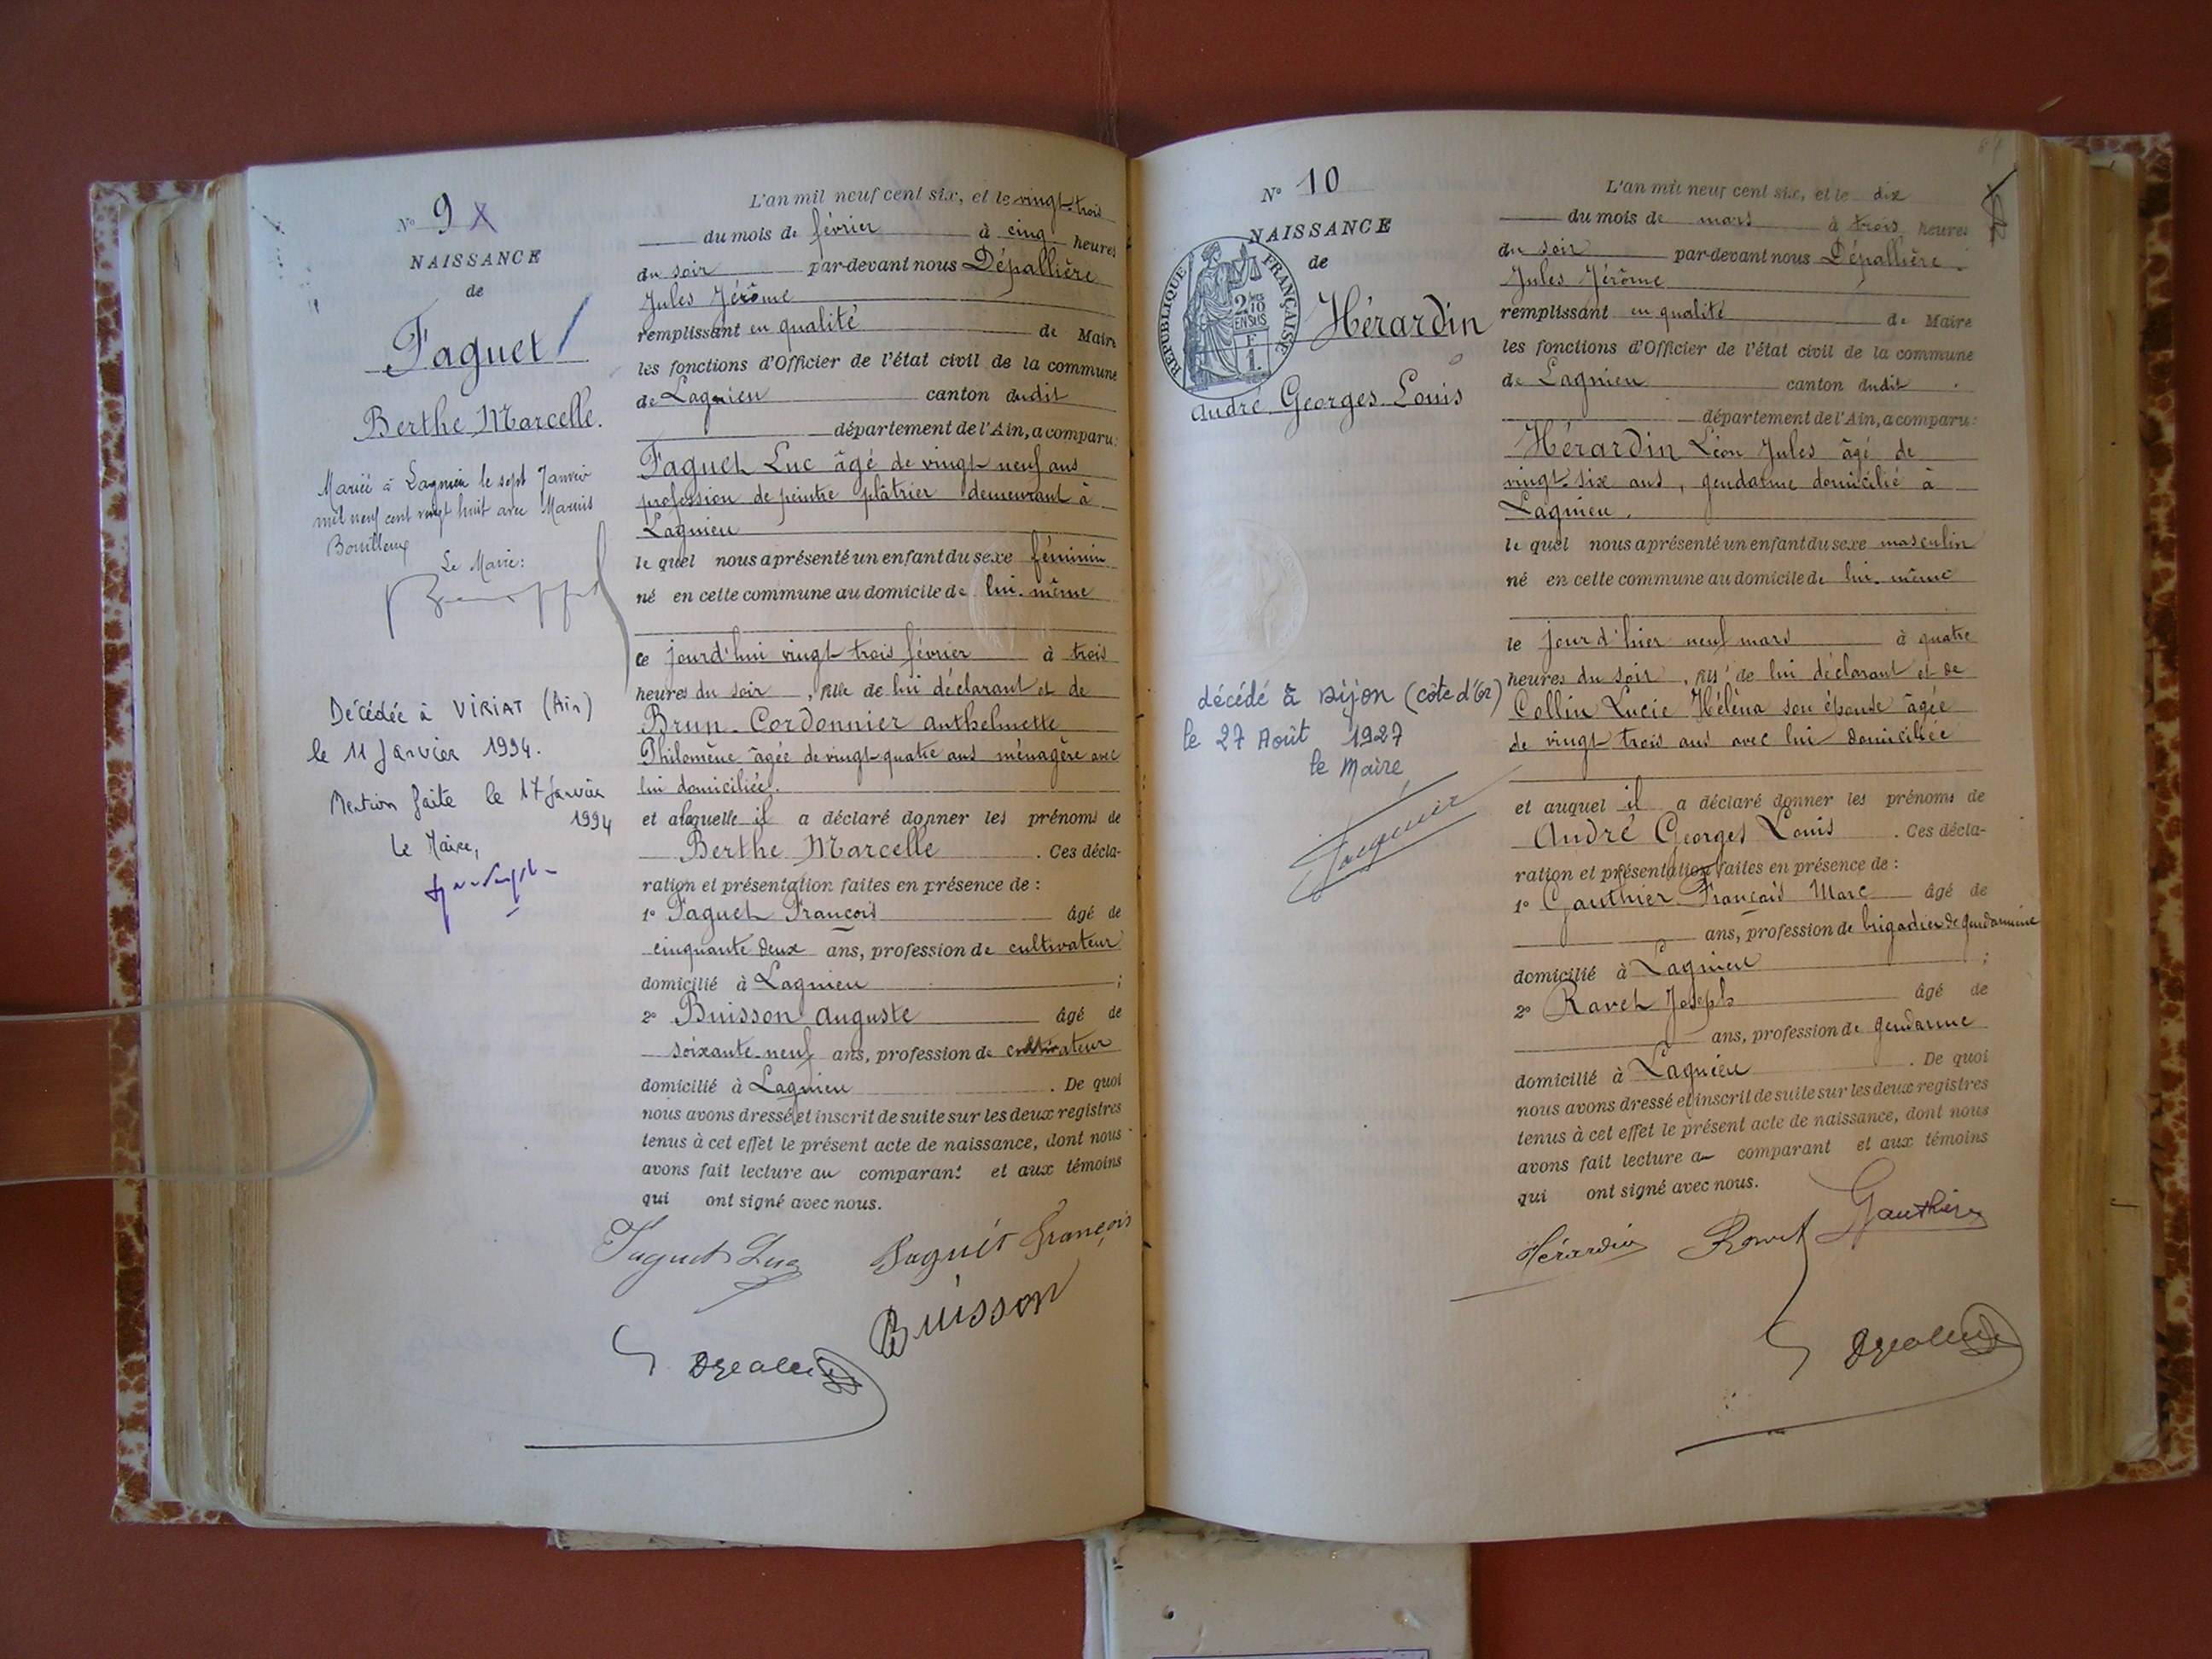 N° 9 X
NAISSANCE
de
Faguet
Berthe Marcelle.
Mariée à Lagnieu le sept Janvier
mil neuf cent vingt huit avec Marius
Bouilloux
Le Maire:
Décédée à VIRIAT (Ain)
le 11 Janvier 1994.
Mention faite le 17 Janvier
1994
Le Maire,
L'an mil neuf cent six, et le vingt-trois
du mois de février à cinq heures
du soir par-devant nous Dépallière
Jules Jérôme
remplissant en qualité de Maire
les fonctions d'Officier de l'état civil de la commune
de Lagnieu canton dudit
département de l'Ain, a comparu:
Faguet Luc âgé de vingt-neuf ans
profession de peintre plâtrier demeurant à
Lagnieu
le quel nous a présenté un enfant du sexe féminin
né en cette commune au domicile de lui-même
ce jourd'hui vingt-trois février à trois
heures du soir, fille de lui déclarant et de
Brun-Cordonnier Anthelmette
Philomène âgée de vingt-quatre ans ménagère avec
lui domiciliée.
et a laquelle il a déclaré donner les prénoms de
Berthe Marcelle. Ces décla-
ration et présentation faites en présence de :
1° Faguet François âgé de
cinquante deux ans, profession de cultivateur
domicilié à Lagnieu ;
2° Buisson Auguste âgé de
soixante-neuf ans, profession de cultivateur
domicilié à Lagnieu. De quoi
nous avons dressé et inscrit de suite sur les deux registres
tenus à cet effet le présent acte de naissance, dont nous
avons fait lecture au comparant et aux témoins
qui ont signé avec nous.
Faguet Luc Faguet François
Buisson
N° 10
NAISSANCE
de
Hérardin
André Georges Louis
RÉPUBLIQUE FRANÇAISE
2/10
EN SUS
1 F
décédé à Dijon (côte d'Or)
le 27 Août 1927
le Maire
L'an mil neuf cent six, et le dix
du mois de mars à trois heures
du soir par-devant nous Dépallière
Jules Jérôme
remplissant en qualité de Maire
les fonctions d'Officier de l'état civil de la commune
de Lagnieu canton dudit
département de l'Ain, a comparu:
Hérardin Léon Jules âgé de
vingt-six ans, gendarme domicilié à
Lagnieu.
le quel nous a présenté un enfant du sexe masculin
né en cette commune au domicile de lui-même
le jour d'hier neuf mars à quatre
heures du soir, fils de lui déclarant et de
Collin Lucie Héléna son épouse âgée
de vingt trois ans avec lui domiciliée
et auquel il a déclaré donner les prénoms de
André Georges Louis. Ces décla-
ration et présentation faites en présence de :
1° Gauthier François Marc âgé de
ans, profession de brigadier de gendarmerie
domicilié à Lagnieu ;
2° Ravet Joseph âgé de
ans, profession de gendarme
domicilié à Lagnieu. De quoi
nous avons dressé et inscrit de suite sur les deux registres
tenus à cet effet le présent acte de naissance, dont nous
avons fait lecture au comparant et aux témoins
qui ont signé avec nous.
Hérardin Ravet Gauthier